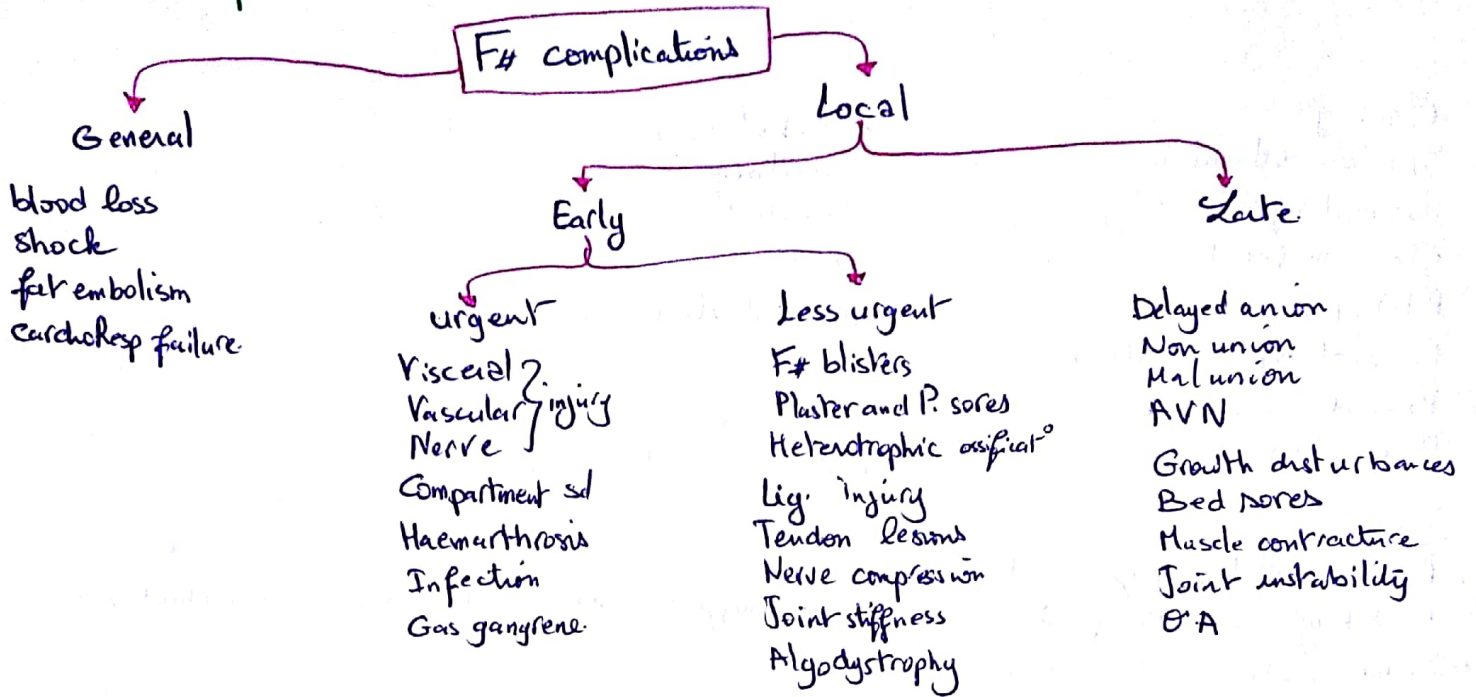 F# complications
General
blood loss
Shock
fat embolism
CardioResp failure
Local
Early
urgent
Visceral
Vascular } injury
Nerve
Compartment sd
Haemarthrosis
Infection
Gas gangrene.
Less urgent
F# blisters
Plaster and P. sores
Heterotrophic ossificat°
Lig. injury
Tendon lesions
Nerve compression
Joint stiffness
Algodystrophy
Late
Delayed union
Non union
Mal union
AVN
Growth disturbances
Bed sores
Muscle contracture
Joint instability
OA